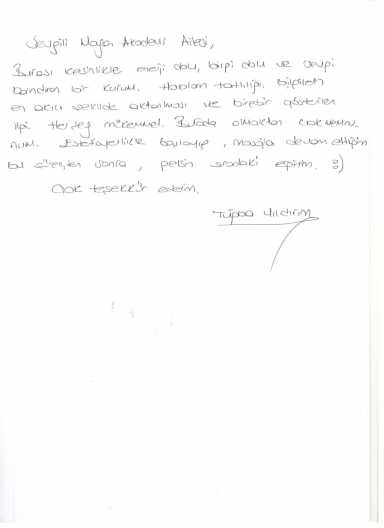 Sevgili Maga Akademi Ailesi,
Burası kesinlikle enerji dolu, bilgi dolu ve sevgi
barındıran bir kurum. Hocaların tatlılığı, bilgilerin
en akıcı şekilde aktarılması ve birebir gösterilen
ilgi Herşey mükemmel. Burada olmaktan çok memnu-
num. Estetisyenlikle başlayıp, masajla devam ettiğim
bu süreçten sonra, gelsin sıradaki eğitim. :)
Çok teşekkür ederim.
Tuğba Yıldırım